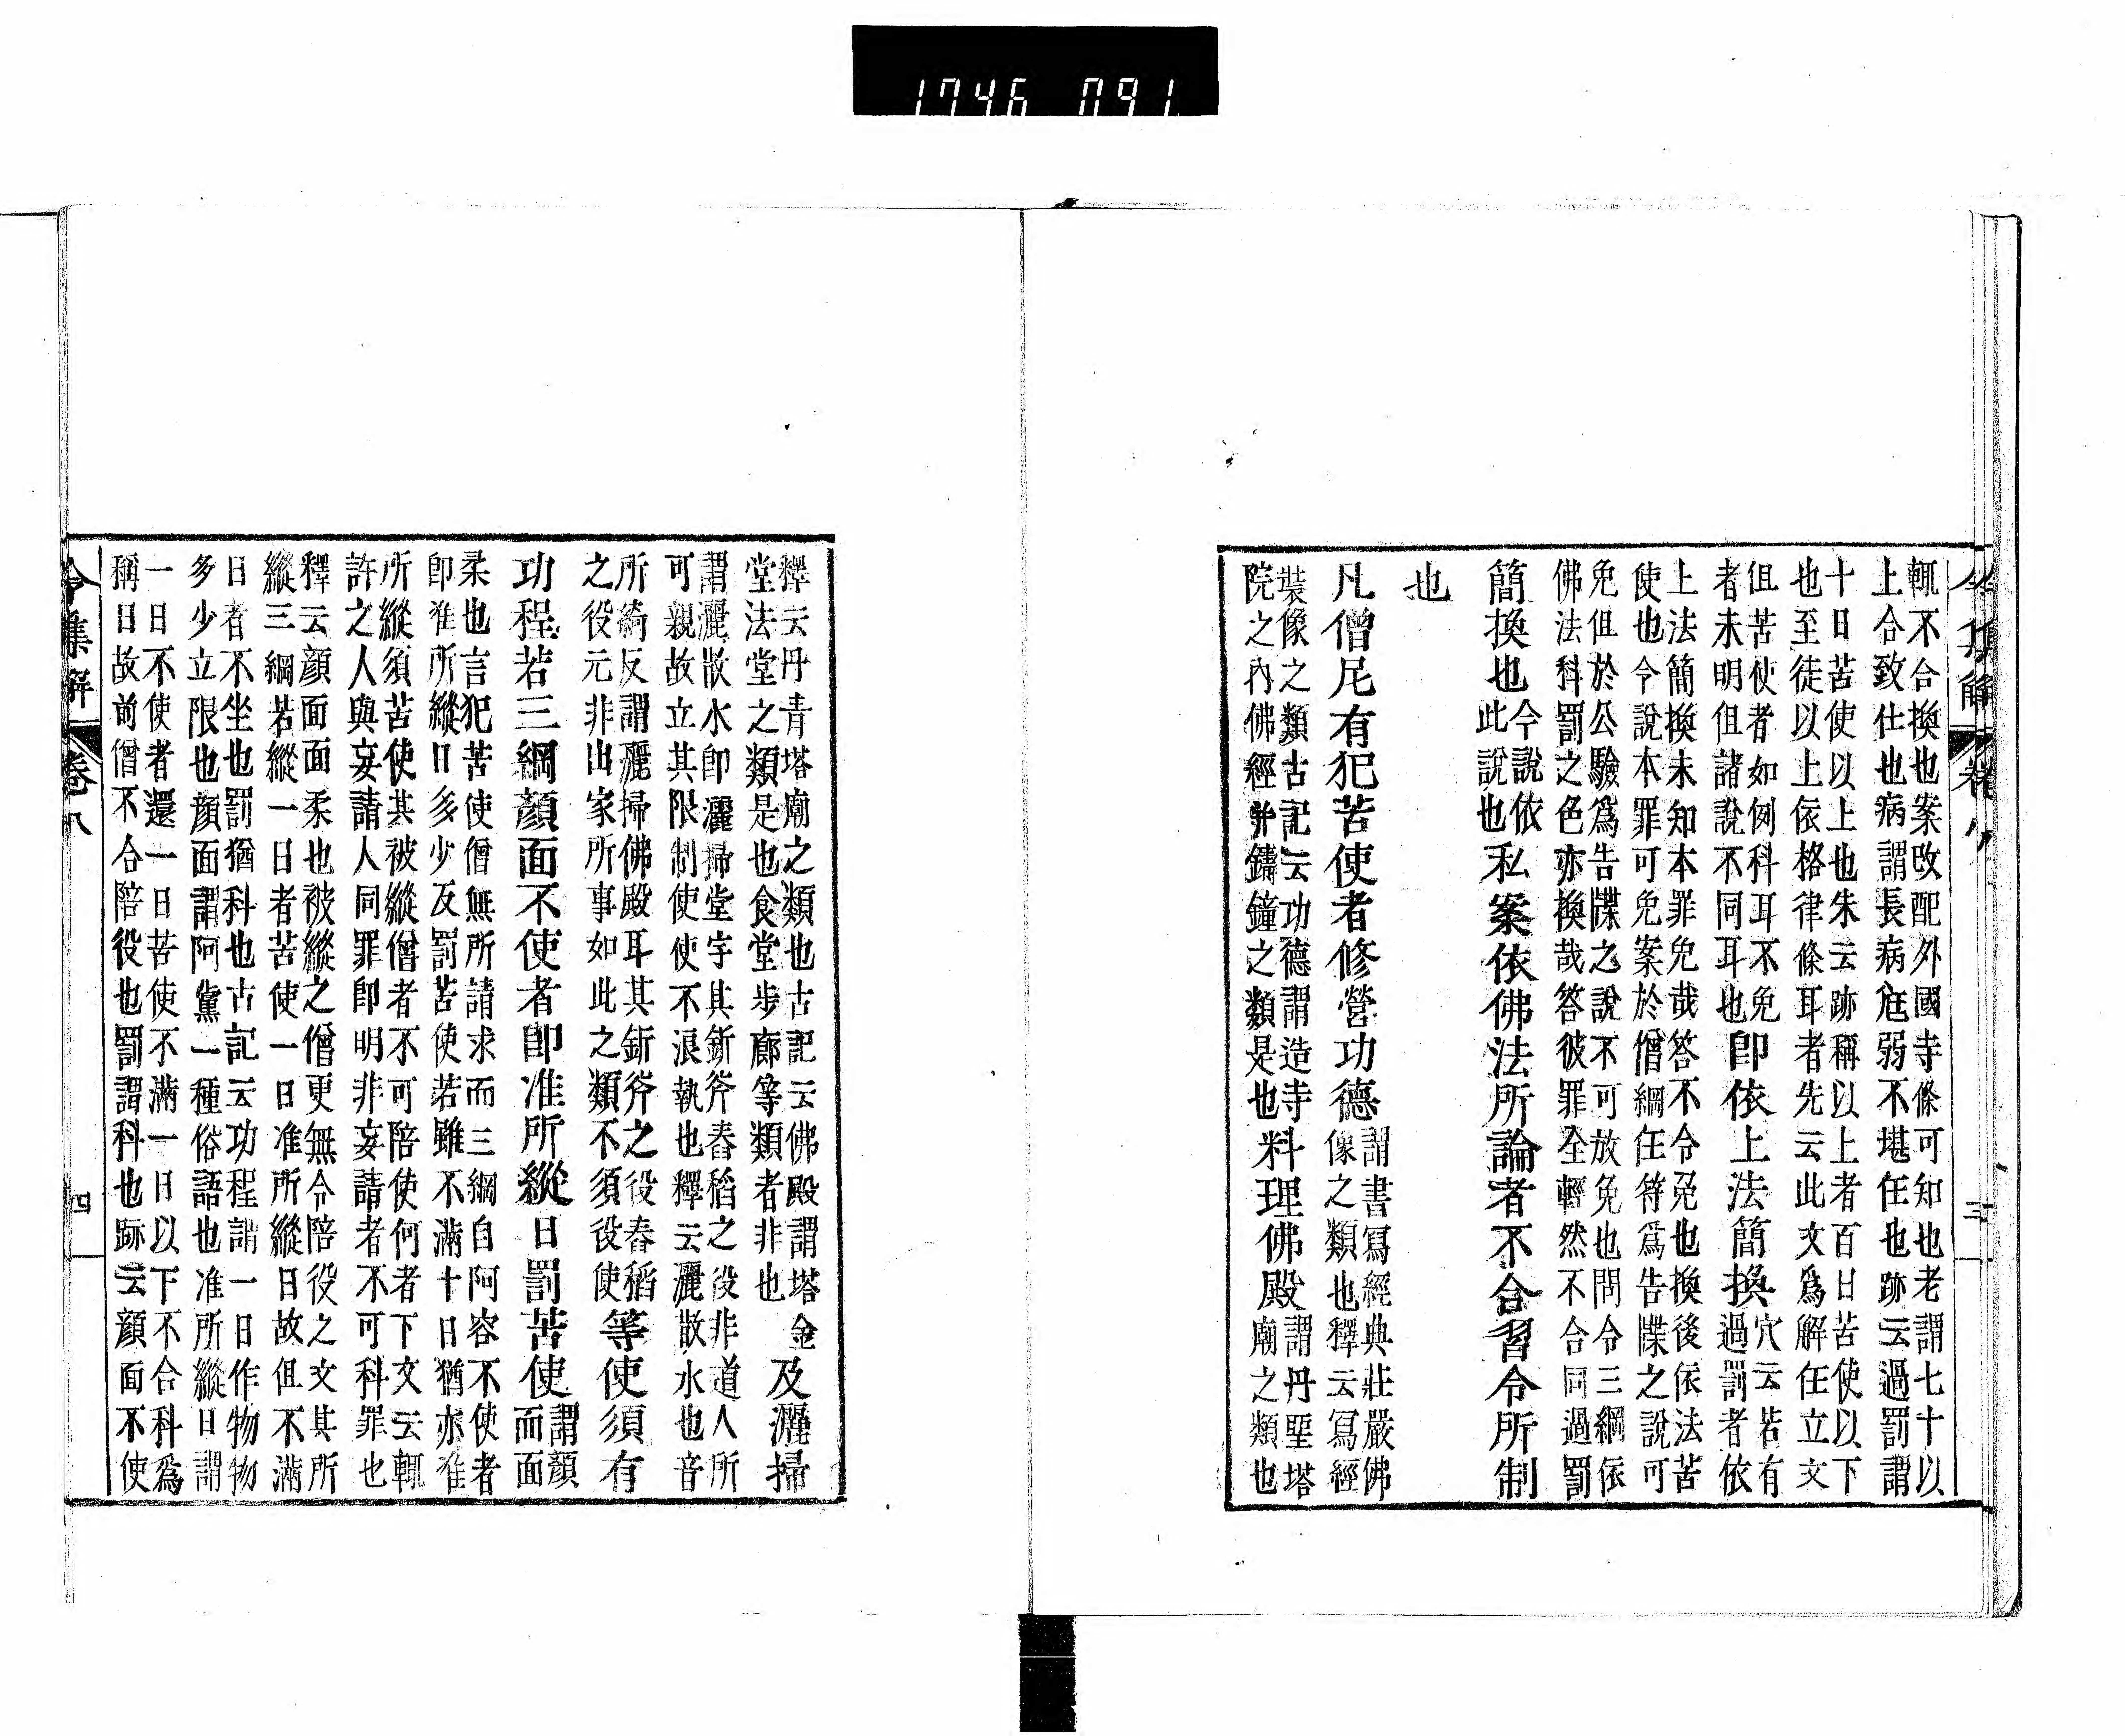 1746 091
令集解 卷八 三
輒不合換也案改配外國寺條可知也老謂七十以
上合致仕也病謂長病尫弱不堪任也跡云過罰謂
十日苦使以上也朱云跡稱以上者百日苦使以下
也至徒以上依格律條耳者先云此文爲解任立文
但苦使者如例科耳不免
者未明但諸說不同耳也
即依上法簡換
穴云若有
過罰者依
上法簡換未知本罪免哉答不令免也換後依法苦
使也今說本罪可免案於僧綱任符爲告牒之說可
免但於公驗爲告牒之說不可放免也問令三綱依
佛法科罰之色亦換哉答彼罪全輕然不合同過罰
簡換也
今說依
此說也
私案依佛法所論者不合習令所制
也
凡僧尼有犯苦使者修營功德
謂書寫經典莊嚴佛
像之類也釋云寫經
裝像之類古記云功德謂造寺
院之內佛經并鑄鐘之類是也
料理佛殿
謂丹堊塔
廟之類也
釋云丹青塔廟之類也古記云佛殿謂塔金
堂法堂之類是也食堂步廊等類者非也
及灑掃
謂灑散水即灑掃堂宇其斫斧舂稻之役非道人所
可親故立其限制使使不浪執也釋云灑散水也音
所綺反謂灑掃佛殿耳其斫斧之役舂稻
之役元非出家所事如此之類不須役使
等使須有
功程若三綱顏面不使者即准所縱日罰苦使
謂顏
面面
柔也言犯苦使僧無所請求而三綱自阿容不使者
即准所縱日多少反罰苦使若雖不滿十日猶亦准
所縱須苦使其被縱僧者不可陪使何者下文云輒
許之人與妄請人同罪即明非妄請者不可科罪也
釋云顏面面柔也被縱之僧更無令陪役之文其所
縱三綱若縱一日者苦使一日准所縱日故但不滿
日者不坐也罰猶科也古記云功程謂一日作物物
多少立限也顏面謂阿黨一種俗語也准所縱日謂
一日不使者還一日苦使不滿一日以下不合科爲
稱日故前僧不合陪役也罰謂科也跡云顏面不使
令集解 卷八 四